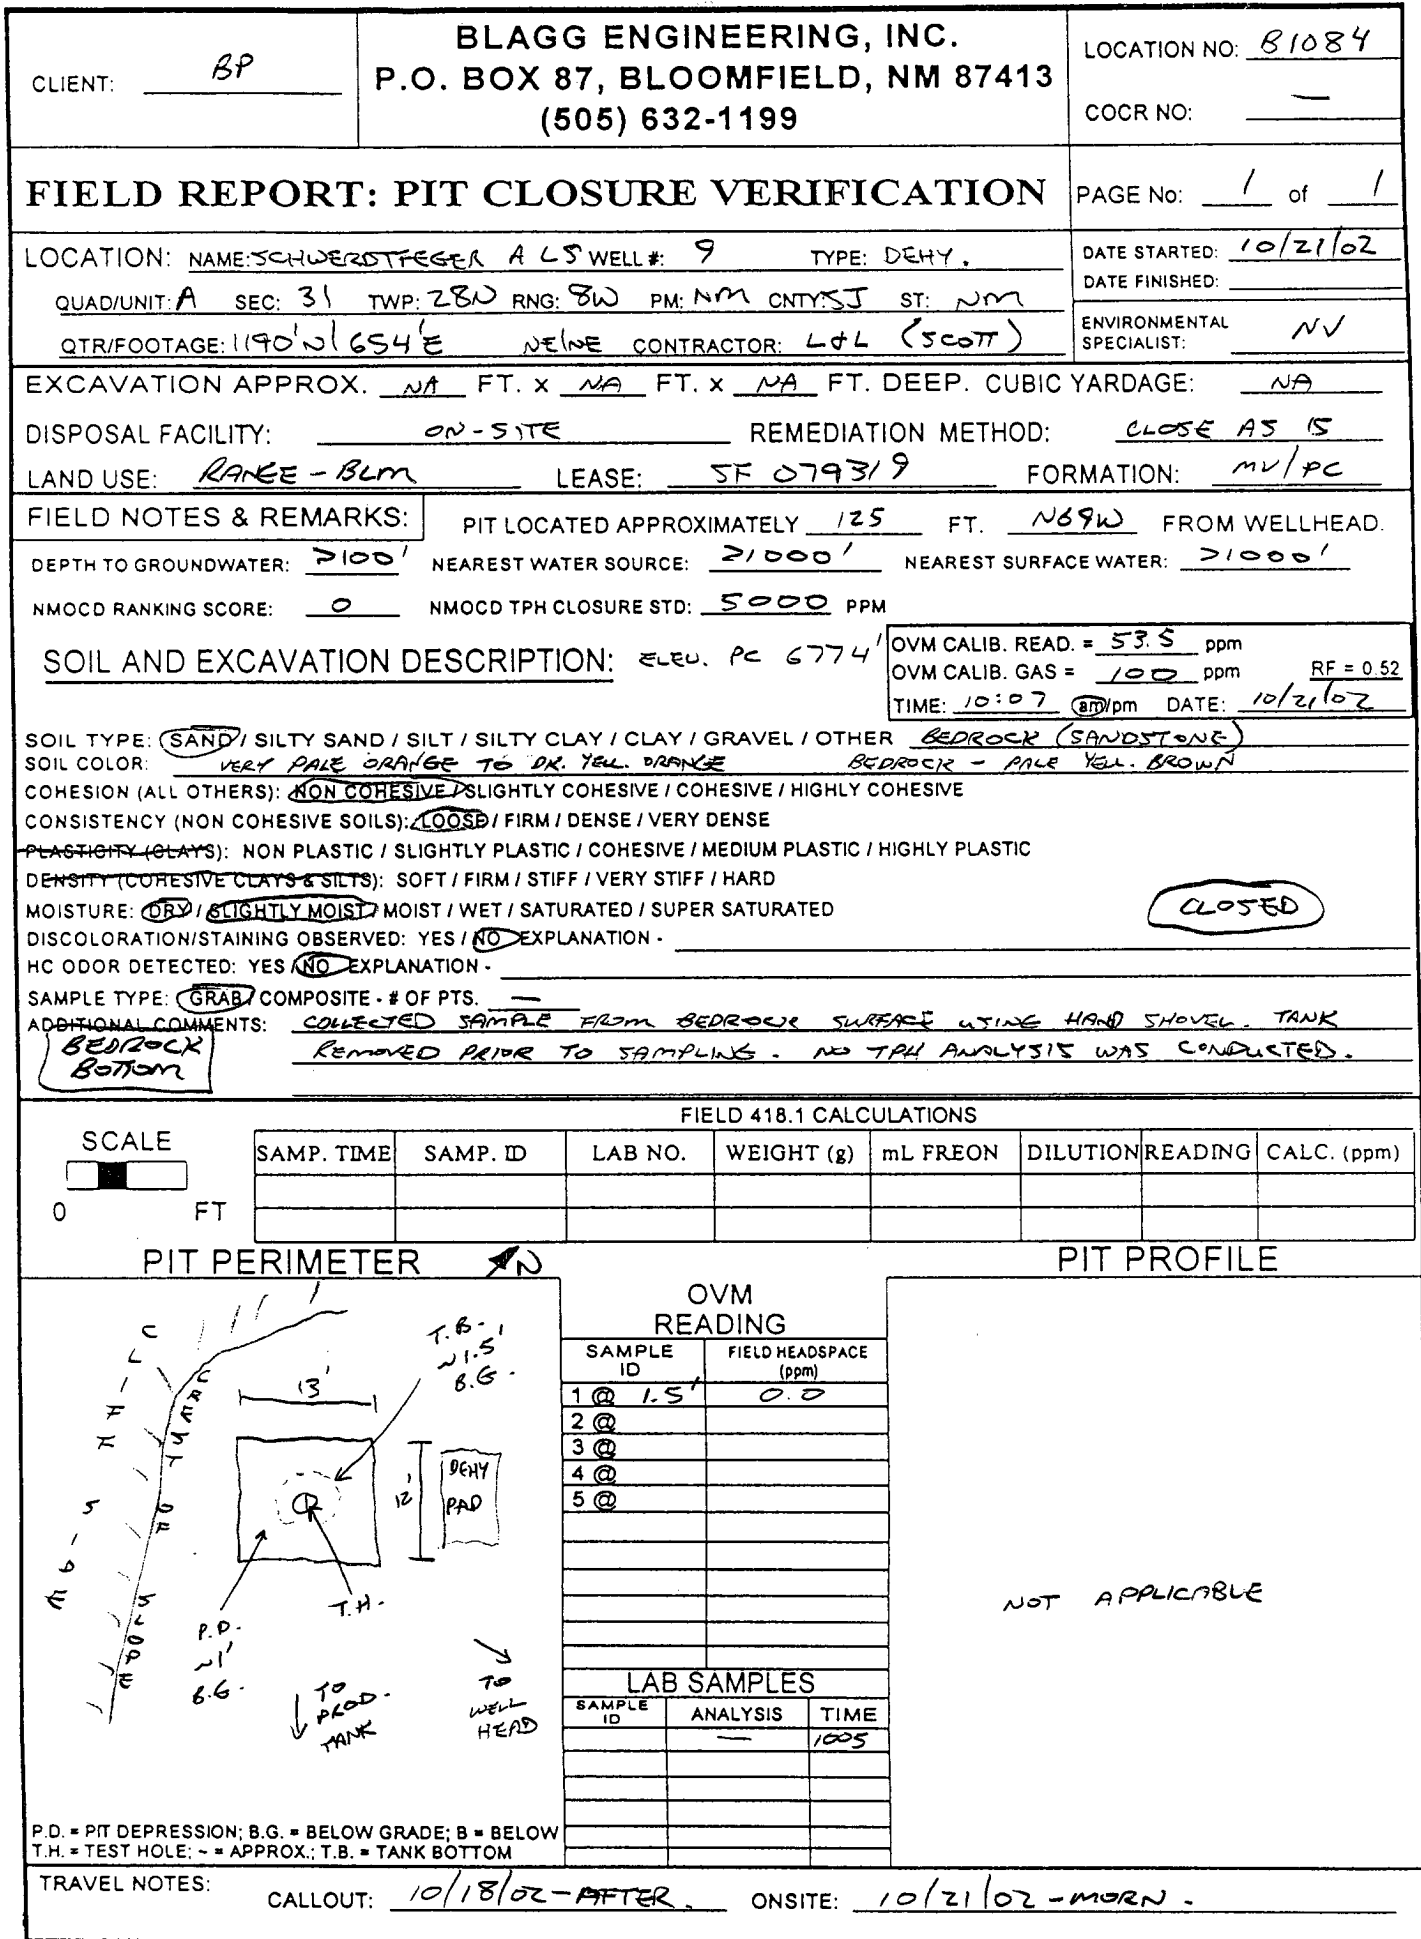 BLAGG ENGINEERING, INC.
P.O. BOX 87, BLOOMFIELD, NM 87413
(505) 632-1199
CLIENT: BP
LOCATION NO: B1084
COCR NO: —
FIELD REPORT: PIT CLOSURE VERIFICATION
PAGE No: 1 of 1
LOCATION: NAME: SCHWERDTFEGER A LS WELL #: 9 TYPE: DEHY.
QUAD/UNIT: A SEC: 31 TWP: 28N RNG: 8W PM: NM CNTY: SJ ST: NM
QTR/FOOTAGE: 1190'N/654'E NE/NE CONTRACTOR: L&L (SCOTT)
DATE STARTED: 10/21/02
DATE FINISHED:
ENVIRONMENTAL SPECIALIST: NV
EXCAVATION APPROX. NA FT. x NA FT. x NA FT. DEEP. CUBIC YARDAGE: NA
DISPOSAL FACILITY: ON-SITE REMEDIATION METHOD: CLOSE AS IS
LAND USE: RANGE - BLM LEASE: SF 079319 FORMATION: MV/PC
FIELD NOTES & REMARKS: PIT LOCATED APPROXIMATELY 125 FT. N69W FROM WELLHEAD.
DEPTH TO GROUNDWATER: >100' NEAREST WATER SOURCE: >1000' NEAREST SURFACE WATER: >1000'
NMOCD RANKING SCORE: 0 NMOCD TPH CLOSURE STD: 5000 PPM
SOIL AND EXCAVATION DESCRIPTION: ELEV. PC 6774'
OVM CALIB. READ. = 53.5 ppm
OVM CALIB. GAS = 100 ppm RF = 0.52
TIME: 10:07 am/pm DATE: 10/21/02
SOIL TYPE: SAND / SILTY SAND / SILT / SILTY CLAY / CLAY / GRAVEL / OTHER BEDROCK (SANDSTONE)
SOIL COLOR: VERY PALE ORANGE TO DK. YELL. ORANGE BEDROCK - PALE YELL. BROWN
COHESION (ALL OTHERS): NON COHESIVE / SLIGHTLY COHESIVE / COHESIVE / HIGHLY COHESIVE
CONSISTENCY (NON COHESIVE SOILS): LOOSE / FIRM / DENSE / VERY DENSE
PLASTICITY (CLAYS): NON PLASTIC / SLIGHTLY PLASTIC / COHESIVE / MEDIUM PLASTIC / HIGHLY PLASTIC
DENSITY (COHESIVE CLAYS & SILTS): SOFT / FIRM / STIFF / VERY STIFF / HARD
MOISTURE: DRY / SLIGHTLY MOIST / MOIST / WET / SATURATED / SUPER SATURATED
CLOSED
DISCOLORATION/STAINING OBSERVED: YES / NO EXPLANATION -
HC ODOR DETECTED: YES / NO EXPLANATION -
SAMPLE TYPE: GRAB / COMPOSITE - # OF PTS. —
ADDITIONAL COMMENTS: COLLECTED SAMPLE FROM BEDROCK SURFACE USING HAND SHOVEL. TANK
REMOVED PRIOR TO SAMPLING. NO TPH ANALYSIS WAS CONDUCTED.
BEDROCK
BOTTOM
FIELD 418.1 CALCULATIONS
SCALE
0 FT
SAMP. TIME SAMP. ID LAB NO. WEIGHT (g) mL FREON DILUTION READING CALC. (ppm)
PIT PERIMETER N
PIT PROFILE
CLIFF SIDE
CREST OF SLOPE
13'
T.B. ~1.5' B.G.
12'
DEHY PAD
T.H.
P.D. ~1' B.G.
TO PROD. TANK
TO WELL HEAD
OVM READING
SAMPLE ID FIELD HEADSPACE (ppm)
1 @ 1.5' 0.0
2 @
3 @
4 @
5 @
LAB SAMPLES
SAMPLE ID ANALYSIS TIME
— 1005
NOT APPLICABLE
P.D. = PIT DEPRESSION; B.G. = BELOW GRADE; B = BELOW
T.H. = TEST HOLE; ~ = APPROX.; T.B. = TANK BOTTOM
TRAVEL NOTES: CALLOUT: 10/18/02 - AFTER. ONSITE: 10/21/02 - MORN.